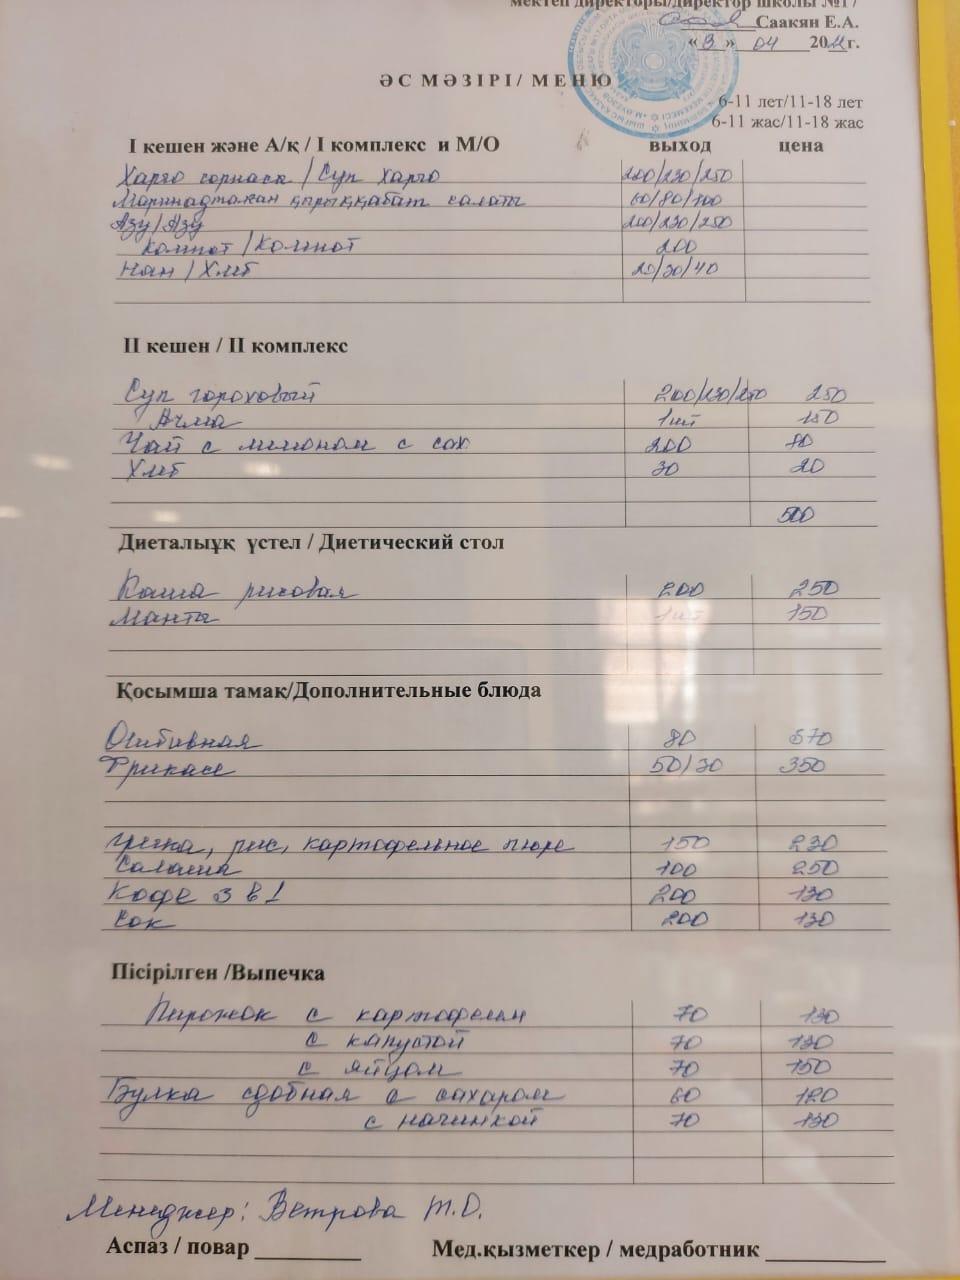 мектеп директоры/директор школы №17
Саакян Е.А.
«3» 04 20 г.
ӘС МӘЗІРІ/ МЕНЮ
6-11 лет/11-18 лет
6-11 жас/11-18 жас
І кешен және А/қ / І комплекс и М/О выход цена
Харчо сорпасы / Суп Харчо 200/230/250
Маринадталған қырыққабат салаты 60/80/100
Азу/Азу 200/230/250
Компот / Компот 200
Нан / Хлеб 20/30/40
ІІ кешен / ІІ комплекс
Суп гороховый 200/230/250 250
Ачма 1 шт 150
Чай с лимоном с сах 200 80
Хлеб 30 20
500
Диеталыұқ үстел / Диетический стол
Каша рисовая 200 250
Манты 1 шт 150
Қосымша тамақ/Дополнительные блюда
Отбивная 80 570
Фрикасе 50/30 350
Гречка, рис, картофельное пюре 150 230
Салаты 100 250
Кофе 3 в 1 200 130
Сок 200 130
Пісірілген /Выпечка
Пирожок с картофелем 70 130
с капустой 70 130
с яйцом 70 150
Булка сдобная с сахаром 60 120
с начинкой 70 130
Менеджер: Ветрова Т.О.
Аспаз / повар Мед.қызметкер / медработник